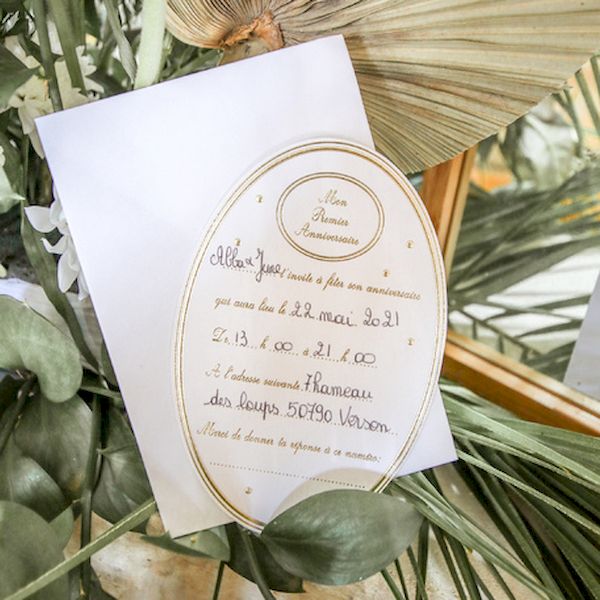 Mon
Premier
Anniversaire
Abba & June t'invite à fêter son anniversaire
qui aura lieu le 22 mai 2021
De 13 h 00 à 21 h 00
À l'adresse suivante 7 hameau
des loups 50790 Verson
Merci de donner ta réponse à ce numéro: